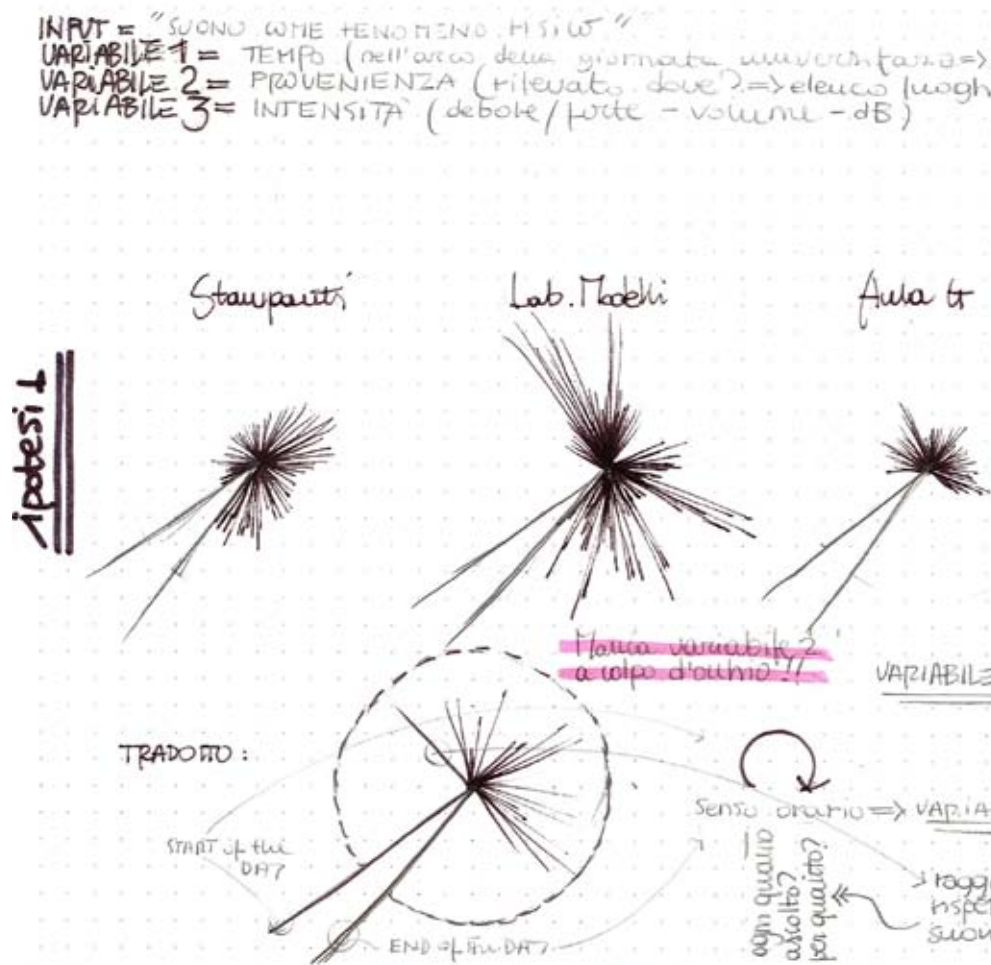 INPUT = "SUONO COME FENOMENO FISICO"
VARIABILE 1 = TEMPO (nell'arco della giornata universitaria =>
VARIABILE 2 = PROVENIENZA (rilevato dove? => elenco luogh
VARIABILE 3 = INTENSITÀ (debole/forte - volume - dB)
Stampanti
Lab. Modelli
Aula G
ipotesi 1
Manca variabile 2
a colpo d'occhio!!
VARIABILE
TRADOTTO:
Senso orario => VARIA
START of the
DAY
ogni quanto
ascolto?
per quanto?
raggi
rispe
suon
END of the DAY